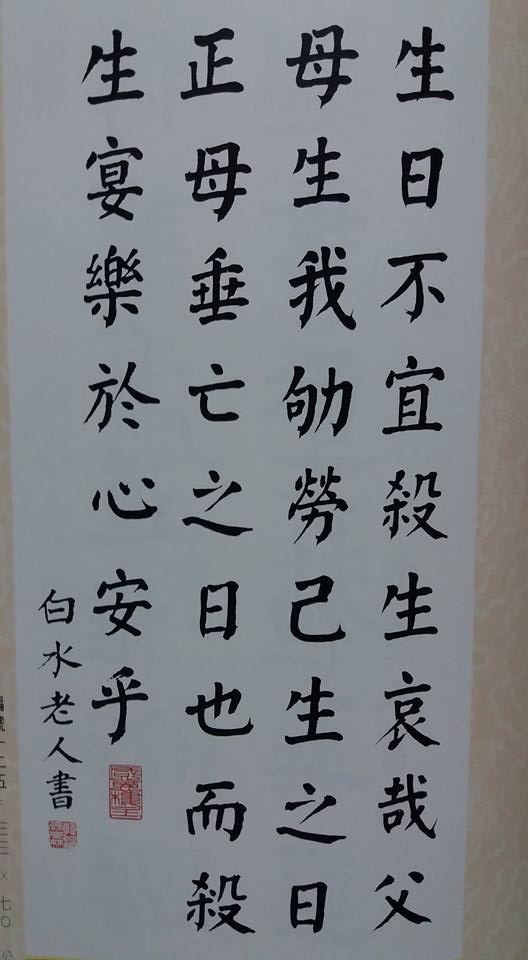 生日不宜殺生哀哉父
母生我劬勞己生之日
正母垂亡之日也而殺
生宴樂於心安乎
白水老人書
編號一二五 三三×七〇公